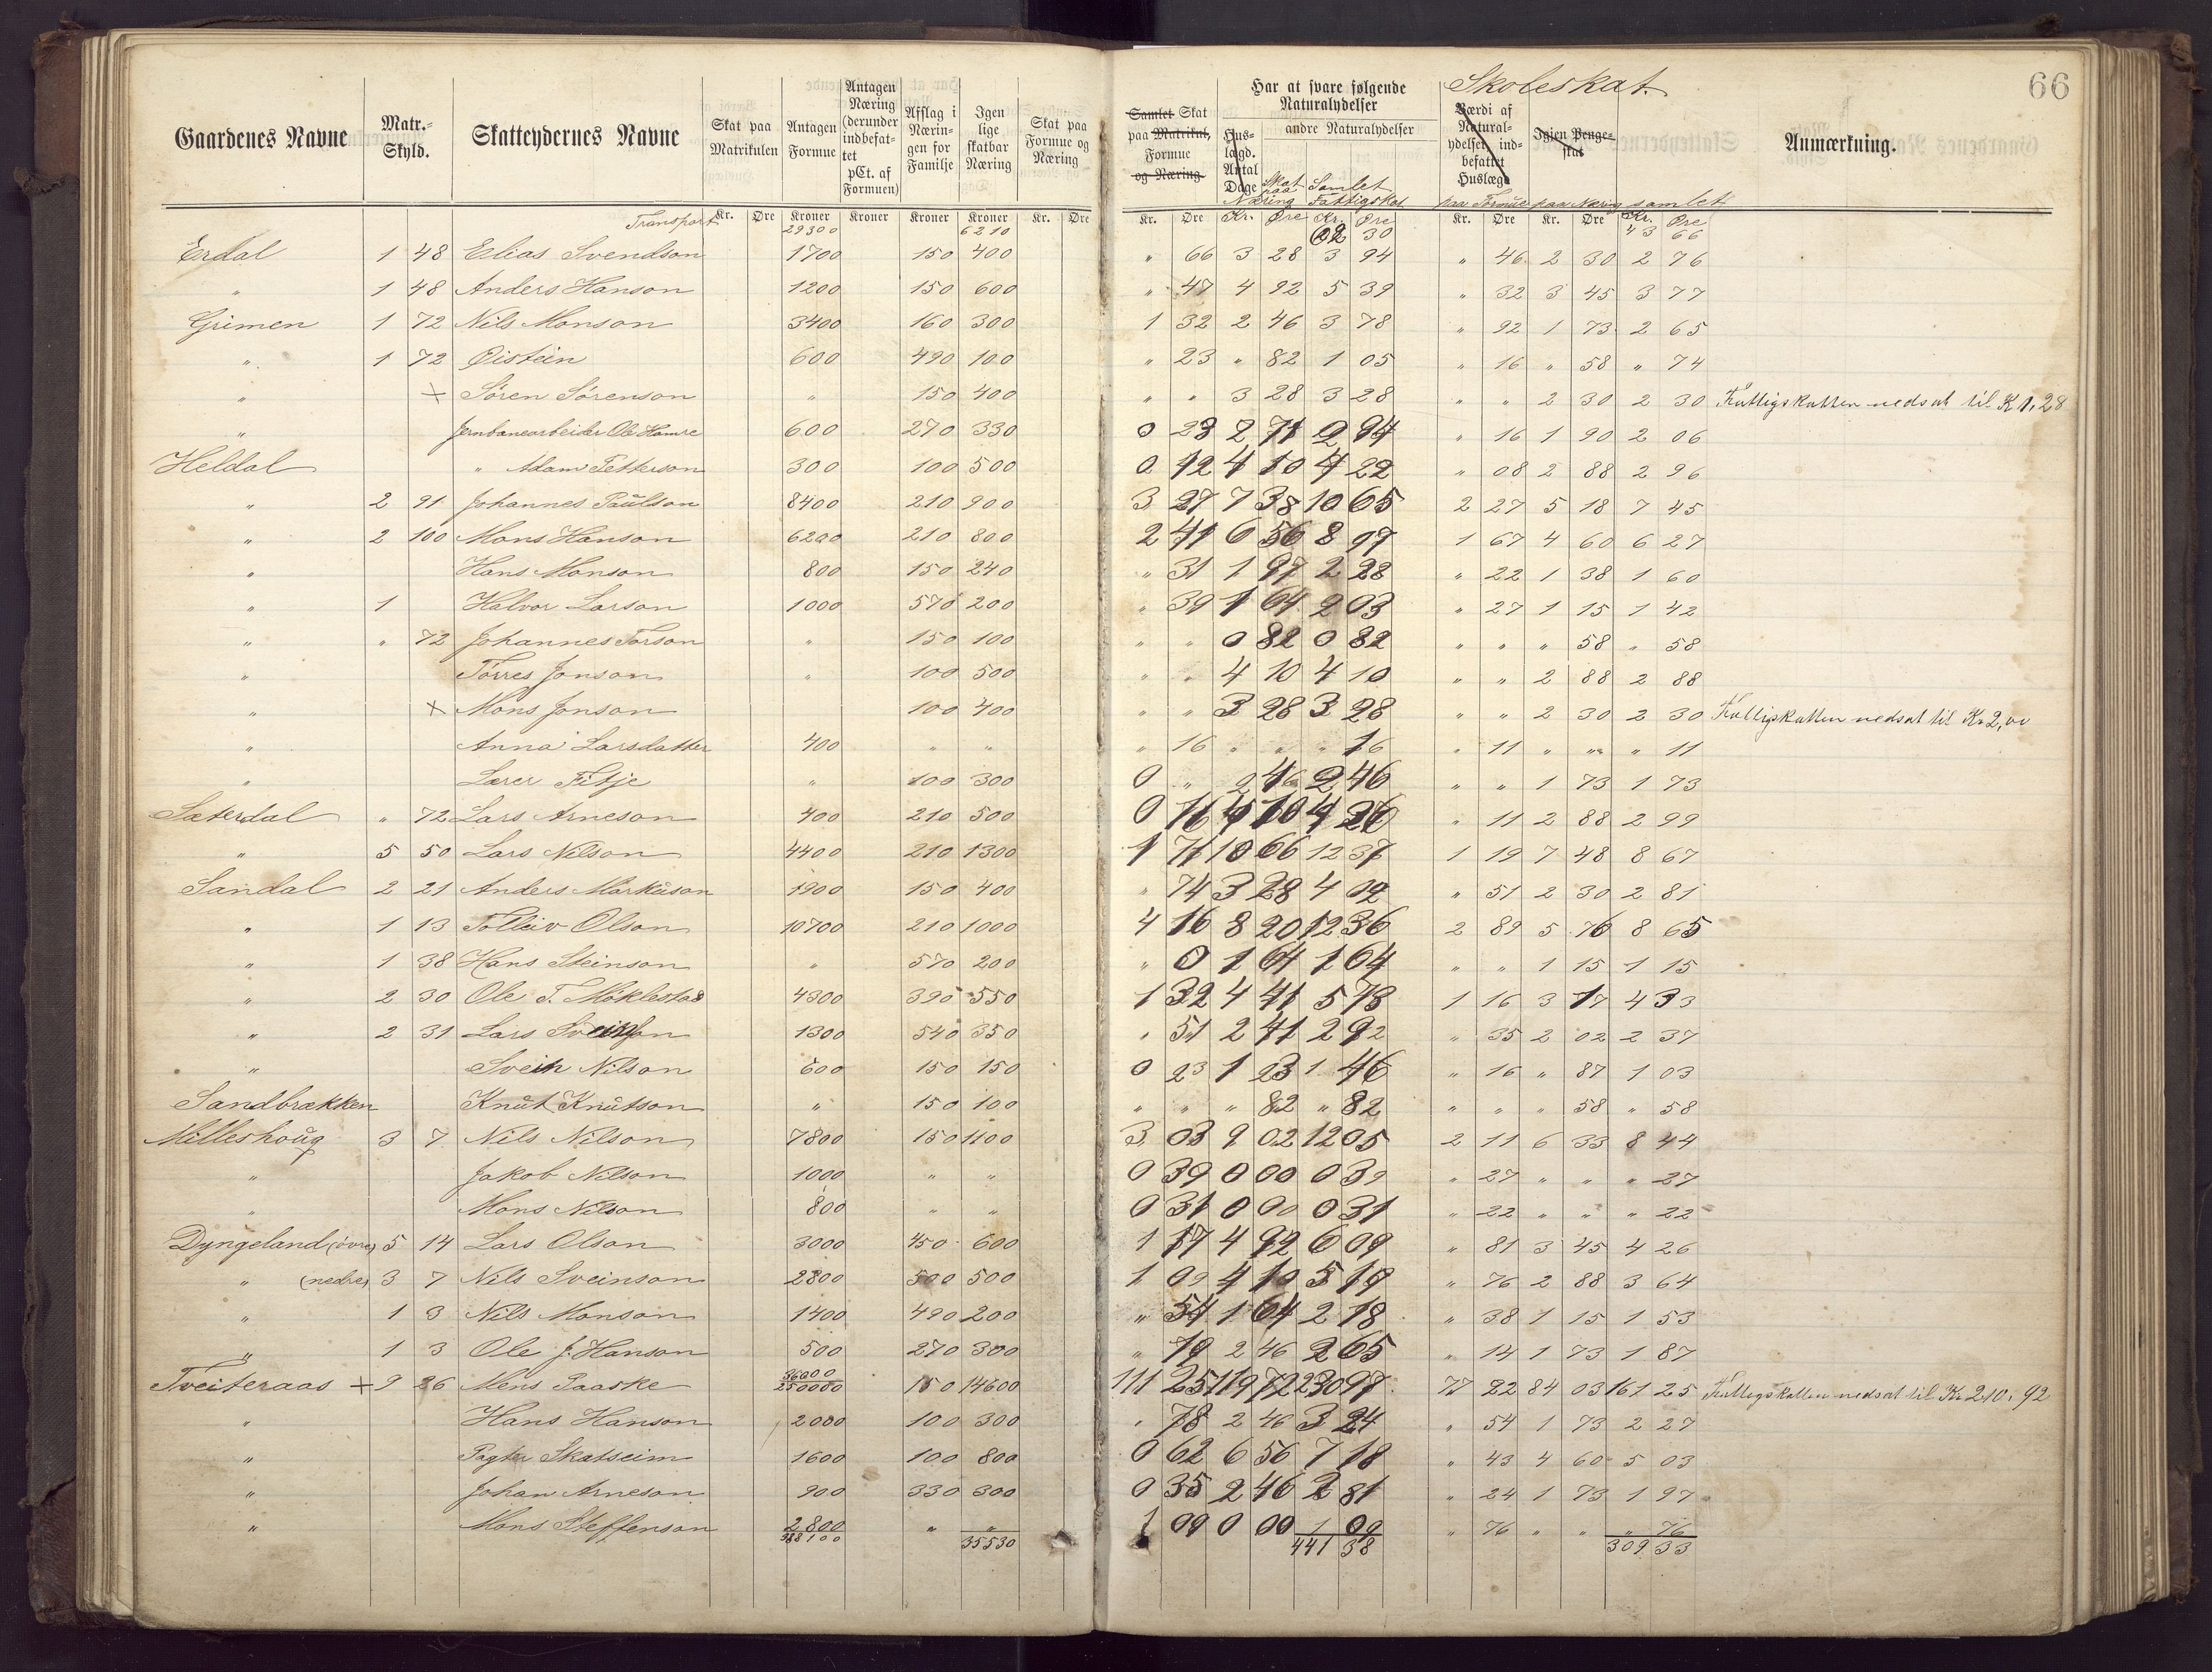 66
Skoleskat.
Gaardenes Navne | Matr.-Skyld. | Skatteydernes Navne | Skat paa Matrikulen | Antagen Formue | Antagen Næring (derunder indbefattet pCt. af Formuen) | Afslag i Næringen for Familje | Igen lige skatbar Næring | Skat paa Formue og Næring | Samlet Skat paa Matrikul, Formue og Næring | Har at svare følgende Naturalydelser | Huslægd. Antal Dage | andre Naturalydelser | Skat paa Næring | Samlet Fattigskat | Værdi af Naturalydelser indbefattet Huslægd | Igjen Pengeskat | paa Formue | paa Næring | samlet | Anmærkning.
Kr. Øre | Kroner | Kroner | Kroner | Kroner | Kr. Øre | Kr. Øre | Kr. Øre | Kr. Øre | Kr. Øre | Kr. Øre | Kr. Øre
Transport 29300 6210 30 43 66
Erdal 1 48 Elias Svendson 1700 150 400 " 66 3 28 3 94 " 46 2 30 2 76
" 1 48 Anders Hanson 1200 150 600 " 47 4 92 5 39 " 32 3 45 3 77
Grimen 1 72 Nils Monson 3400 160 300 1 32 2 46 3 78 " 92 1 73 2 65
" 1 72 Øistein 600 490 100 " 23 " 82 1 05 " 16 " 58 " 74
" + Sören Sörenson " 150 400 " " 3 28 3 28 " " 2 30 2 30 Fattigskatten nedsat til K 1,28
" Jernbanearbeider Ole Hamre 600 270 330 0 23 2 71 2 94 " 16 1 90 2 06
Heldal " Adam Petterson 300 100 500 0 12 4 10 4 22 " 08 2 88 2 96
" 2 91 Johannes Paulson 8400 210 900 3 27 7 38 10 65 2 27 5 18 7 45
" 2 100 Mons Hanson 6200 210 800 2 41 6 56 8 97 1 67 4 60 6 27
" Hans Monson 800 150 240 " 31 1 97 2 28 " 22 1 38 1 60
" 1 Halvor Larson 1000 570 200 " 39 1 64 2 03 " 27 1 15 1 42
" " 72 Johannes Torson " 150 100 " " 0 82 0 82 " " " 58 " 58
" Törres Jonson " 100 500 " " 4 10 4 10 " " 2 88 2 88
" + Mons Jonson 100 400 " " 3 28 3 28 " " 2 30 2 30 Fattigskatten nedsat til Kr 2,00
" Anna Larsdatter 400 " " " 16 " " " 16 " 11 " " " 11
" Lærer Fitje " 100 300 0 " 2 46 2 46 " " 1 73 1 73
Sæterdal " 72 Lars Arneson 400 210 500 0 16 4 10 4 26 " 11 2 88 2 99
" 5 50 Lars Nilson 4400 210 1300 1 71 10 66 12 37 1 19 7 48 8 67
Sandal 2 21 Anders Markuson 1900 150 400 " 74 3 28 4 02 " 51 2 30 2 81
" 1 13 Tolleiv Olson 10700 210 1000 4 16 8 20 12 36 2 89 5 76 8 65
" 1 38 Hans Steinson " 570 200 " 0 1 64 1 64 " " 1 15 1 15
" 2 30 Ole T. Möklestad 4300 390 550 1 32 4 41 5 73 1 16 3 17 4 33
" 2 31 Lars Sveinson 1300 540 350 " 51 2 41 2 92 " 35 2 02 2 37
" Svein Nilson 600 150 150 0 23 1 23 1 46 " 16 " 87 1 03
Sandbrækken Knut Knutson " 150 100 " " " 82 " 82 " " " 58 " 58
Milleshoug 3 7 Nils Nilson 7800 150 1100 3 03 9 02 12 05 2 11 6 33 8 44
" Jakob Nilson 1000 " " 0 39 0 00 0 39 " 27 " " " 27
" Mons Nilson 800 " " 0 31 0 00 0 31 " 22 " " " 22
Dyngeland (övre) 5 14 Lars Olson 3000 450 600 1 17 4 92 6 09 " 81 3 45 4 26
" (nedre) 3 7 Nils Sveinson 2800 500 500 1 09 4 10 5 19 " 76 2 88 3 64
" 1 3 Nils Monson 1400 490 200 " 54 1 64 2 18 " 38 1 15 1 53
" 1 3 Ole J. Hanson 500 270 300 " 19 2 46 2 65 " 14 1 73 1 87
Tveiteraas + 9 26 Mens Paaske 36000 250000 150 14600 111 25 119 72 230 97 77 22 84 03 161 25 Fattigskatten nedsat til Kr 210,92
" Hans Hanson 2000 100 300 " 78 2 46 3 24 " 54 1 73 2 27
" Pagter Skatseim 1600 100 800 0 62 6 56 7 18 " 43 4 60 5 03
" Johan Arneson 900 330 300 0 35 2 46 2 81 " 24 1 73 1 97
" Mons Steffenson 2800 " " 1 09 0 00 1 09 " 76 " " " 76
388100 35530 441 38 309 33